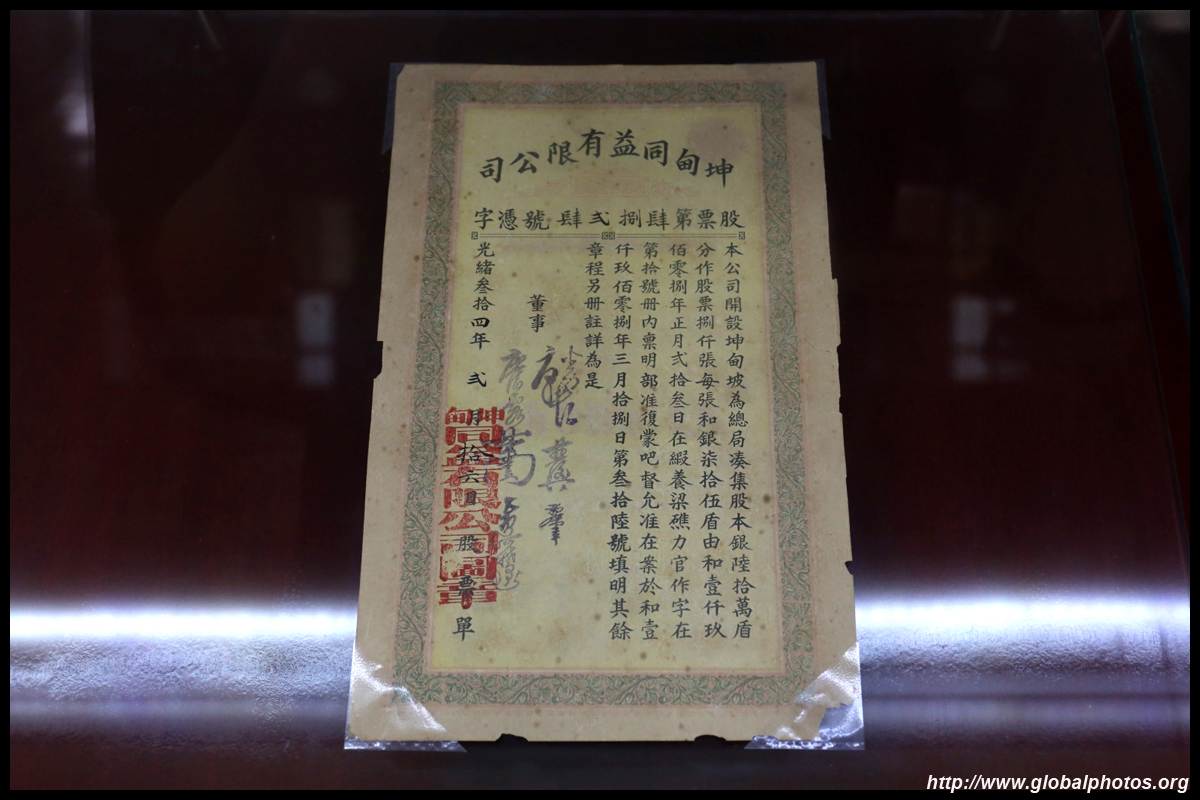 坤甸同益有限公司
股票第肆捌弍肆號憑字
本公司開設坤甸坡為總局凑集股本銀陸拾萬盾
分作股票捌仟張每張和銀柒拾伍盾由和壹仟玖
佰零捌年正月弍拾叁日在緞養梁礁力官作字在
第拾號册内禀明部准復蒙吧督允准在案於和壹
仟玖佰零捌年三月拾捌日第叁拾陸號填明其餘
章程另册註詳為是
董事
光緒叁拾四年弍月拾六日股票單
坤甸同益有限公司圖章
http://www.globalphotos.org